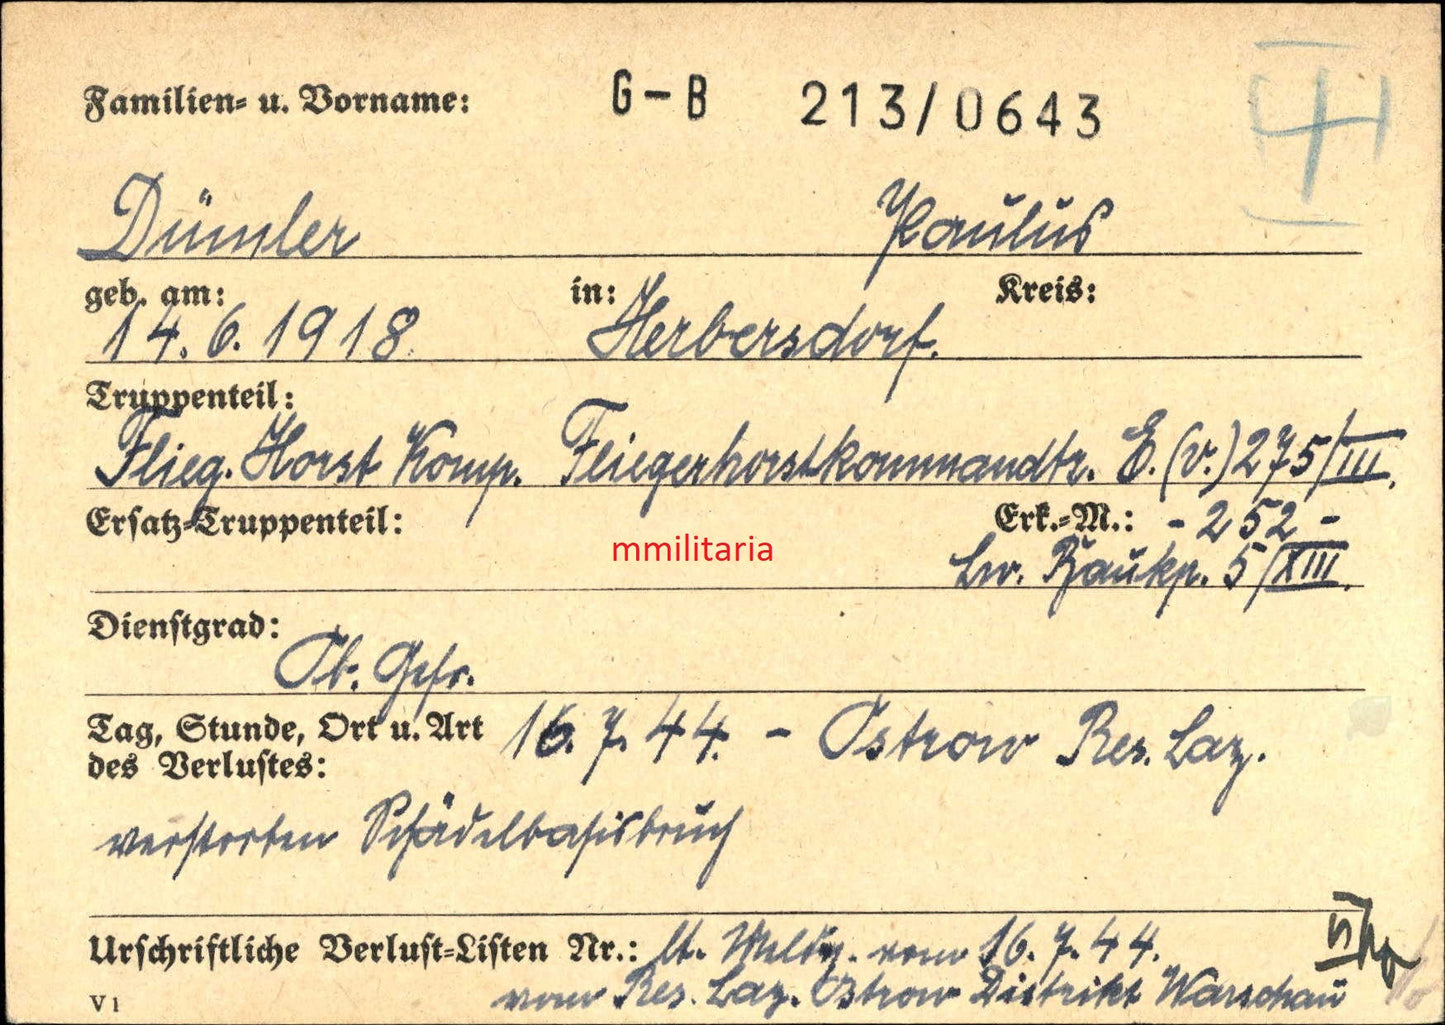 Familien- u. Vorname: G-B 213/0643
Dümler Paulus
geb. am: in: Kreis:
14.6.1918 Herbersdorf.
Truppenteil:
Flieg. Horst Komp. Fliegerhorstkommandtr. E.(v.) 275/III.
Ersatz-Truppenteil: Erk.-M.: -252-
mmilitaria
Lw. Baukp. 5/XIII.
Dienstgrad:
Ob. Gefr.
Tag, Stunde, Ort u. Art 16.7.44. - Ostrow Res. Laz.
des Verlustes:
verstorben Schädelbasisbruch
Urschriftliche Verlust-Listen Nr.: lt. Meldg. vom 16.7.44.
vom Res. Laz. Ostrow Distrikt Warschau
V 1